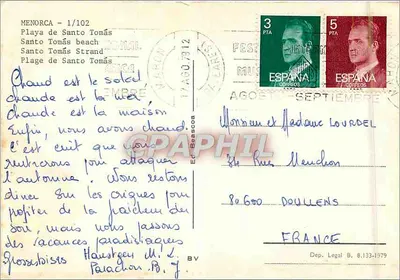 MENORCA - 1/102
Playa de Santo Tomás
Santo Tomás beach
Santo Tomás Strand
Plage de Santo Tomás
Chaud est le soleil
chaude est la mer
chaude est la maison
Enfin, nous avons chaud.
C'est cuit que nous
rentrerons pour attaquer
l'automne. Nous restons
dîner sur les criques pour
profiter de la fraîcheur du
soir, mais nous passons
des vacances paradisiaques
Grosses bises
MAHON
AGO
AGOS
SEPTIEMBRE
3
PTA
ESPAÑA
CORREOS
5
PTA
ESPAÑA
CORREOS
PHIL
Monsieur et Madame LOURDEL
34 Rue
80600 DOULLENS
FRANCE
BV
Dep. Legal B. 8.133-1979